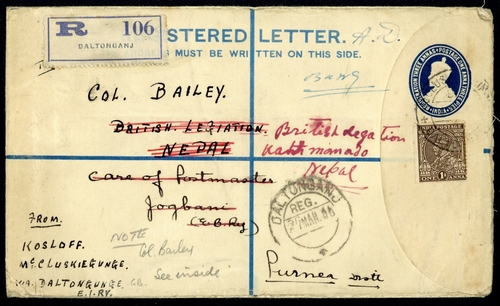 R 106
DALTONGANJ
STERED LETTER. A.D.
MUST BE WRITTEN ON THIS SIDE.
REGISTRATION THREE ANNAS · POSTAGE ONE ANNA THREE PIES
INDIA
COL. BAILEY.
BRITISH LEGATION.
NEPAL
British Legation
Kathmando
Nepal
INDIA POSTAGE
ONE 1A ANNA
Care of Postmaster
Jogbani
(E.B.Ry)
DALTONGANJ
REG.
MAR.
Purnea
FROM.
KOSLOFF.
McCLUSKIEGUNGE.
VIA. DALTONGUNGE.
E.I.RY.
NOTE
Col. Bailey
See inside